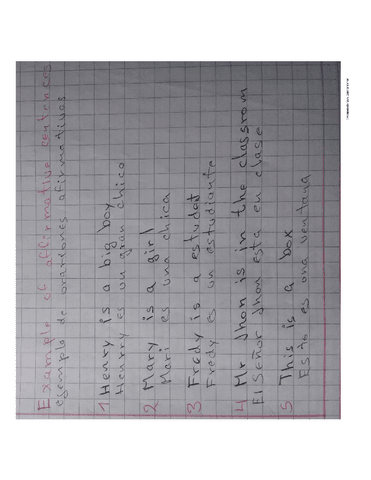 Example of affirmative centences
ejemplo de oraciones afirmativas
1 Henry is a big boy
Henrry es un gran chico
2 Mary is a girl
Mari es una chica
3 Fredy is a estudat
Fredy es un estudiante
4 Mr Jhon is in the classrom
El Señor Jhon esta en clase
5 This is a box
Esto es una ventana